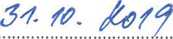 31. 10. 2019